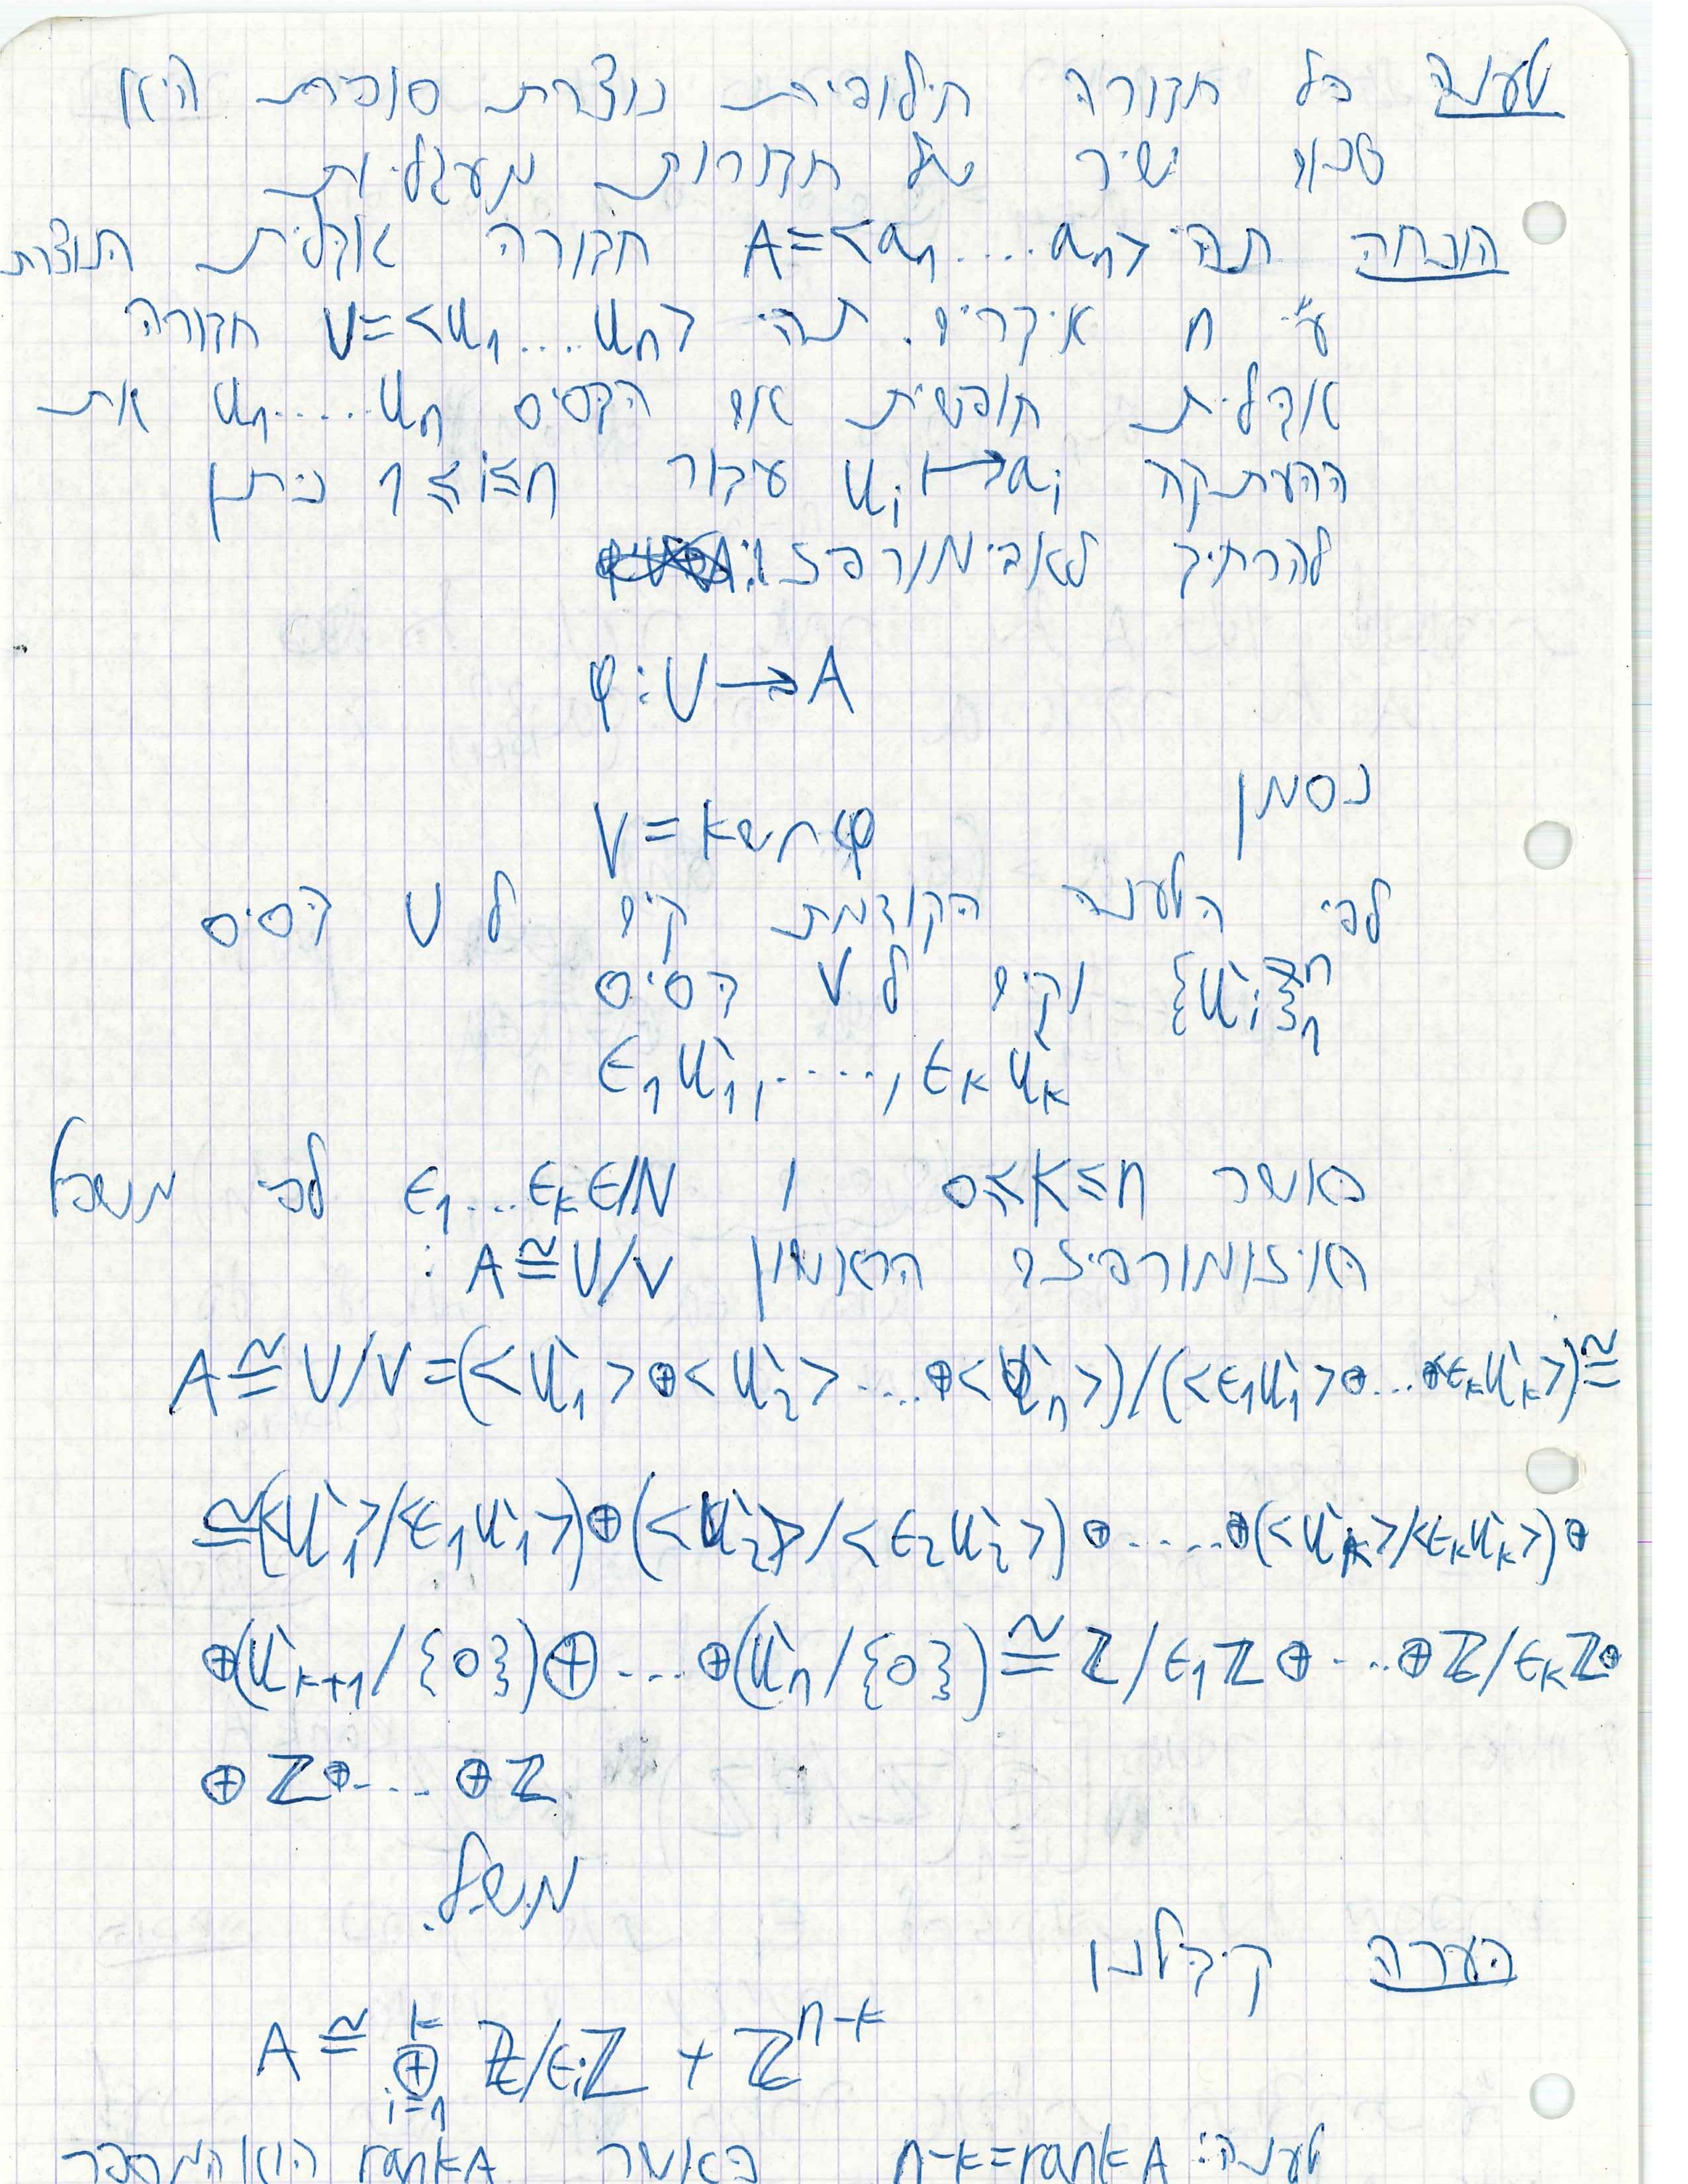 טענה כל חבורה חילופית נוצרת סופית היא
סכום ישיר של חבורות מעגליות
הוכחה תהי A=<a₁....aₙ> חבורה אבלית הנוצרת
ע"י n איברים. תהי U=<u₁....uₙ> חבורה
אבלית חופשית עם הבסיס u₁.....uₙ את
ההעתקה uᵢ↦aᵢ עבור 1≤i≤n ניתן
להרחיב לאפימורפיזם:
φ:U→A
נסמן
V=kerφ
לפי הטענה הקודמת קיים ל U בסיס
{u'ᵢ}₁ⁿ וקיים ל V בסיס
ε₁u'₁,.....,εₖu'ₖ
כאשר 0≤k≤n ו ε₁...εₖ∈ℕ לפי משפט
האיזומורפיזם הראשון A≅U/V :
A≅U/V=(<u'₁>⊕<u'₂>....⊕<u'ₙ>)/(<ε₁u'₁>⊕...⊕<εₖu'ₖ>)≅
≅(<u'₁>/<ε₁u'₁>)⊕(<u'₂>/<ε₂u'₂>)⊕.....⊕(<u'ₖ>/<εₖu'ₖ>)⊕
⊕(u'ₖ₊₁/{0})⊕...⊕(u'ₙ/{0})≅ℤ/ε₁ℤ⊕...⊕ℤ/εₖℤ⊕
⊕ℤ⊕....⊕ℤ
מש.ל.
הערה קיבלנו
A≅⊕ᵢ₌₁ᵏ ℤ/εᵢℤ + ℤⁿ⁻ᵏ
טענה: n-k=rankA כאשר rankA הוא המספר